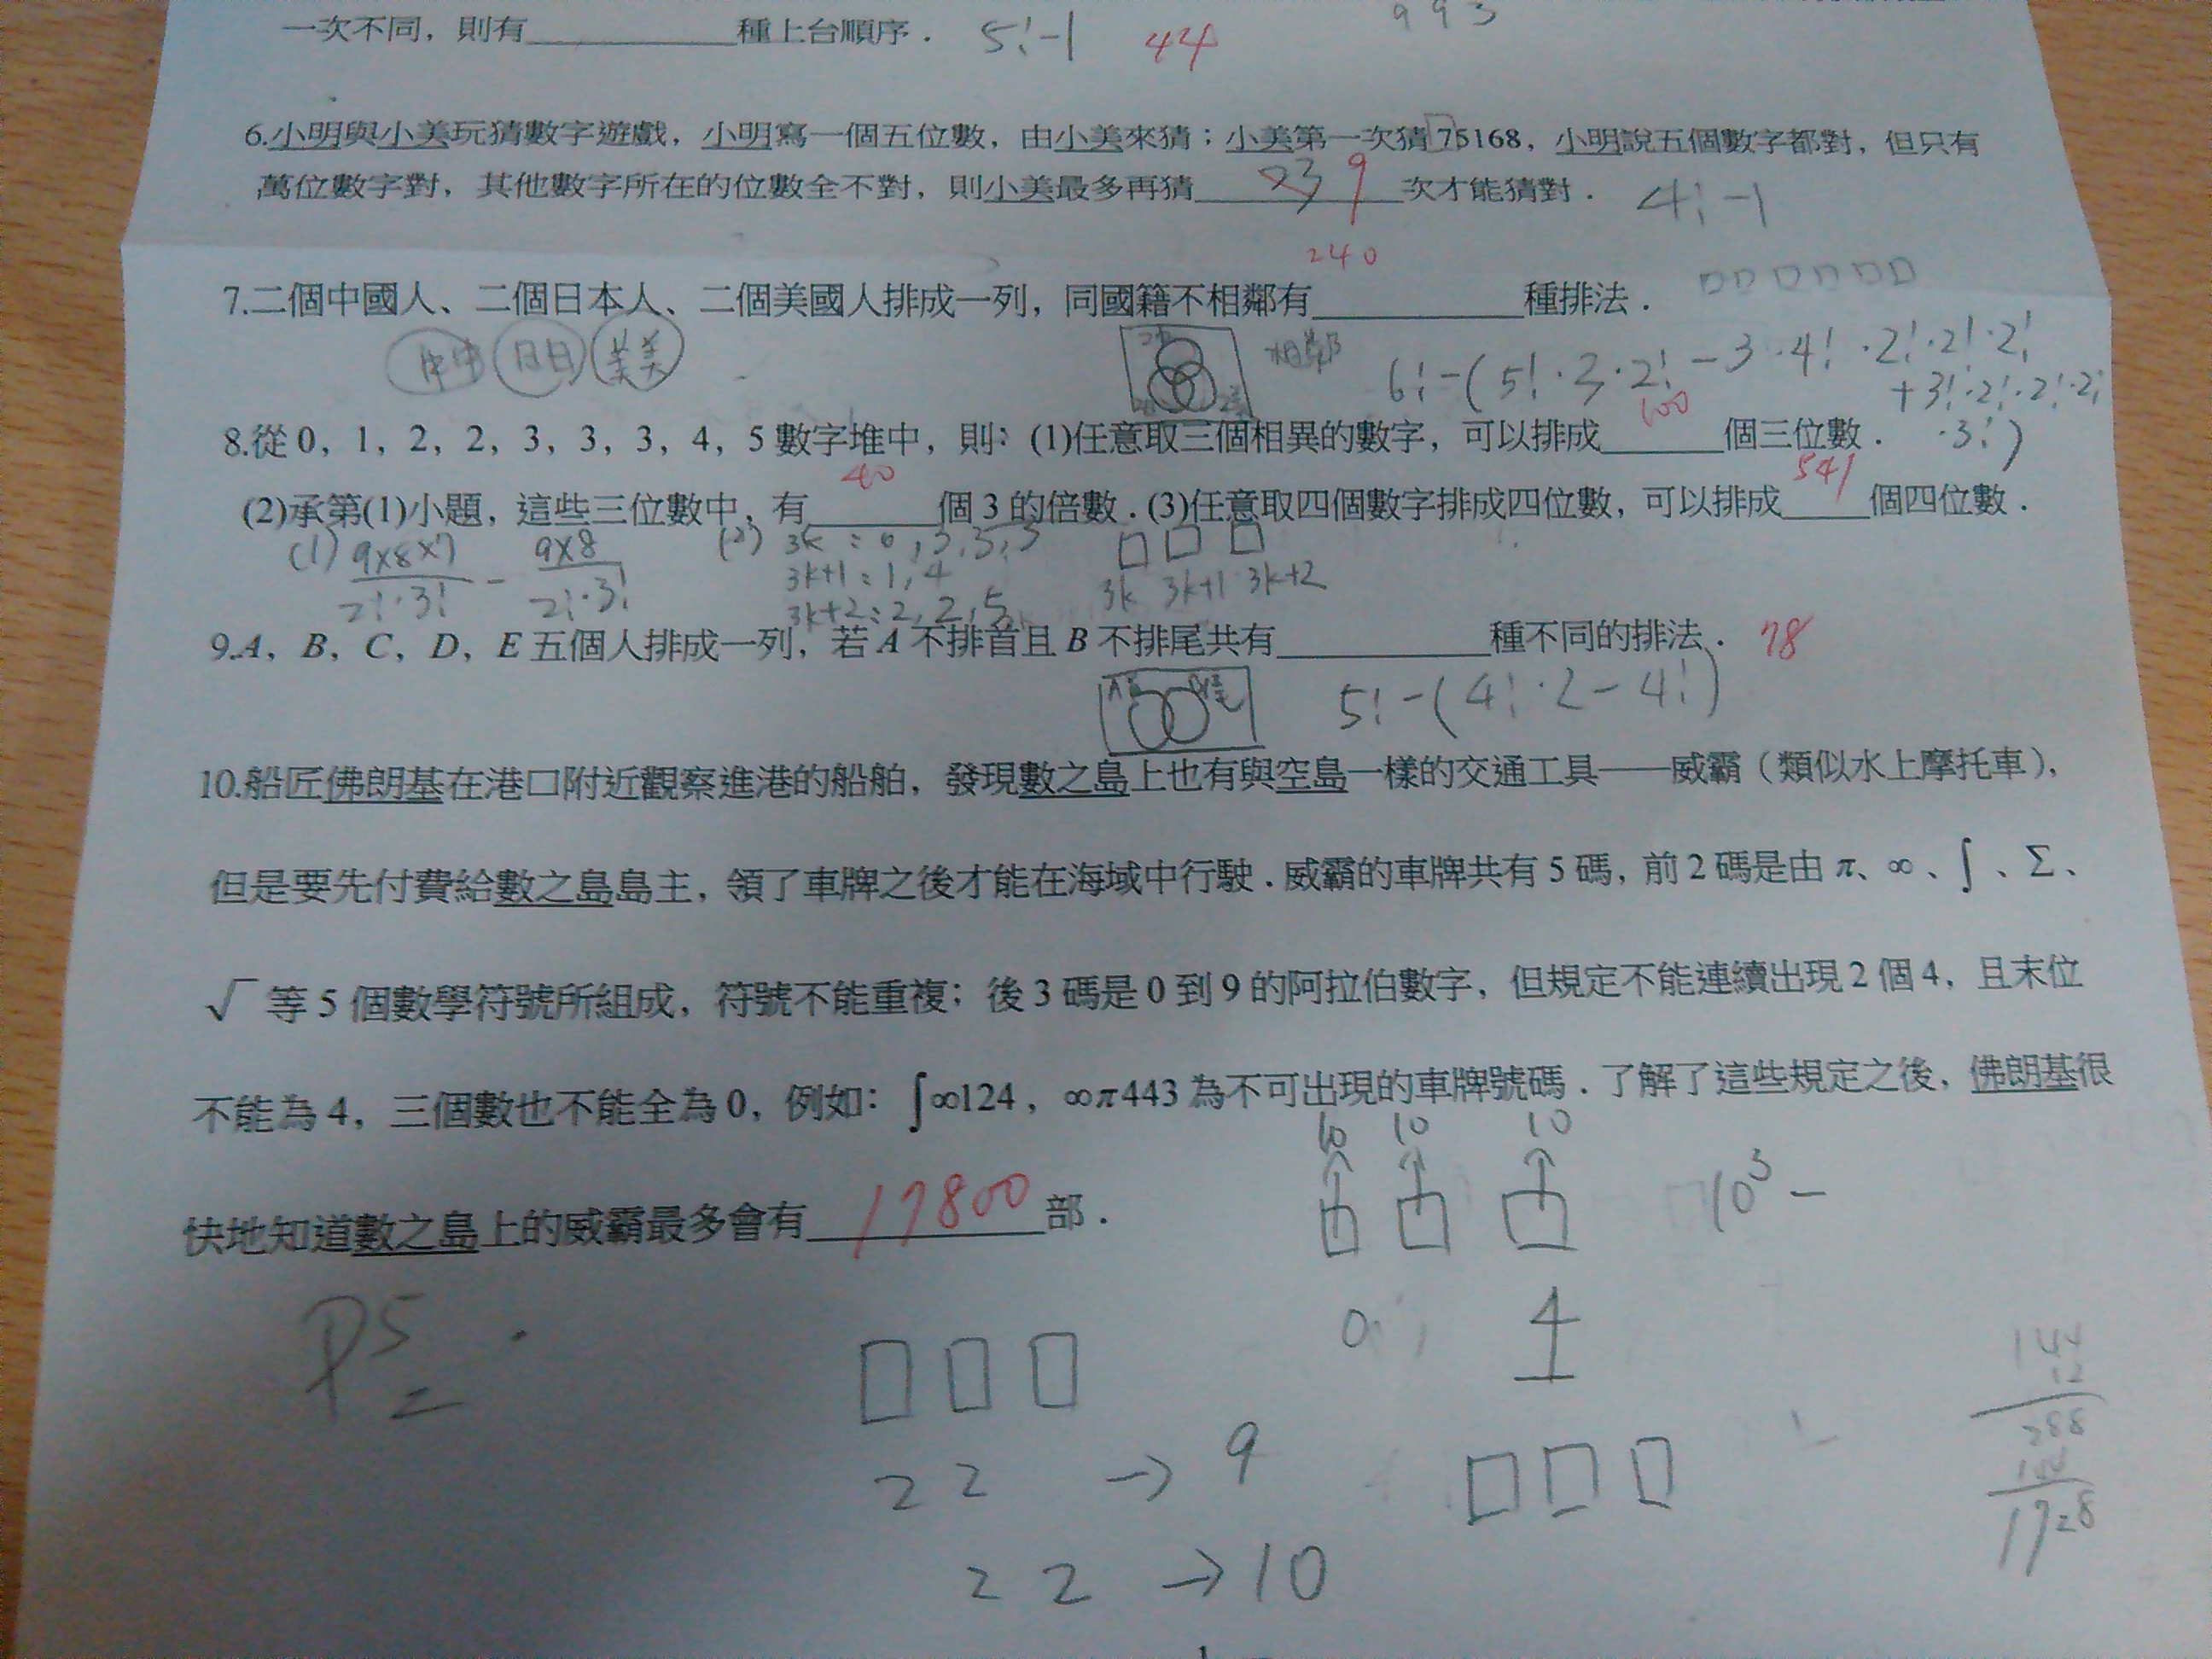 9 9 3
一次不同，則有__________種上台順序． 5!-1 44
6.小明與小美玩猜數字遊戲，小明寫一個五位數，由小美來猜；小美第一次猜 75168，小明說五個數字都對，但只有
萬位數字對，其他數字所在的位數全不對，則小美最多再猜 23 9 次才能猜對． 4!-1
240
7.二個中國人、二個日本人、二個美國人排成一列，同國籍不相鄰有__________種排法． □□□□□□
中中 日日 美美 相鄰 6!-(5!·3·2!-3·4!·2!·2!·2!
+3!·2!·2!·2!
·3!)
100
8.從 0，1，2，2，3，3，3，4，5 數字堆中，則：(1)任意取三個相異的數字，可以排成______個三位數．
40 541
(2)承第(1)小題，這些三位數中，有______個 3 的倍數．(3)任意取四個數字排成四位數，可以排成____個四位數．
(1) 9×8×7/2!·3! - 9×8/2!·3! (2) 3k：0,3,3,3 □ □ □
3k+1：1,4 3k 3k+1 3k+2
3k+2：2,2,5
9.A，B，C，D，E 五個人排成一列，若 A 不排首且 B 不排尾共有__________種不同的排法． 78
5!-(4!·2-4!)
10.船匠佛朗基在港口附近觀察進港的船舶，發現數之島上也有與空島一樣的交通工具——威霸（類似水上摩托車），
但是要先付費給數之島島主，領了車牌之後才能在海域中行駛．威霸的車牌共有 5 碼，前 2 碼是由 π、∞、∫、Σ、
√ 等 5 個數學符號所組成，符號不能重複；後 3 碼是 0 到 9 的阿拉伯數字，但規定不能連續出現 2 個 4，且末位
不能為 4，三個數也不能全為 0，例如：∫∞124，∞π443 為不可出現的車牌號碼．了解了這些規定之後，佛朗基很
10 10 10
快地知道數之島上的威霸最多會有 17800 部． □ □ □ 10³-
P⁵₂ · 0 4
□ □ □
144
12
288
144
1728
2 2 → 9 □ □ □
2 2 → 10
1